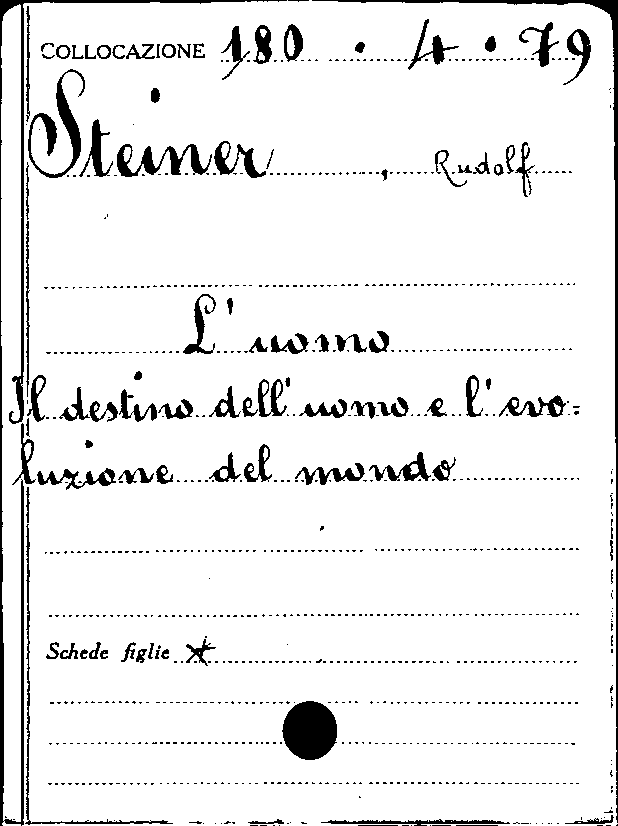 COLLOCAZIONE 180 . 4 . 79
Steiner , Rudolf
L'uomo
Il destino dell'uomo e l'evo-
luzione del mondo
Schede figlie